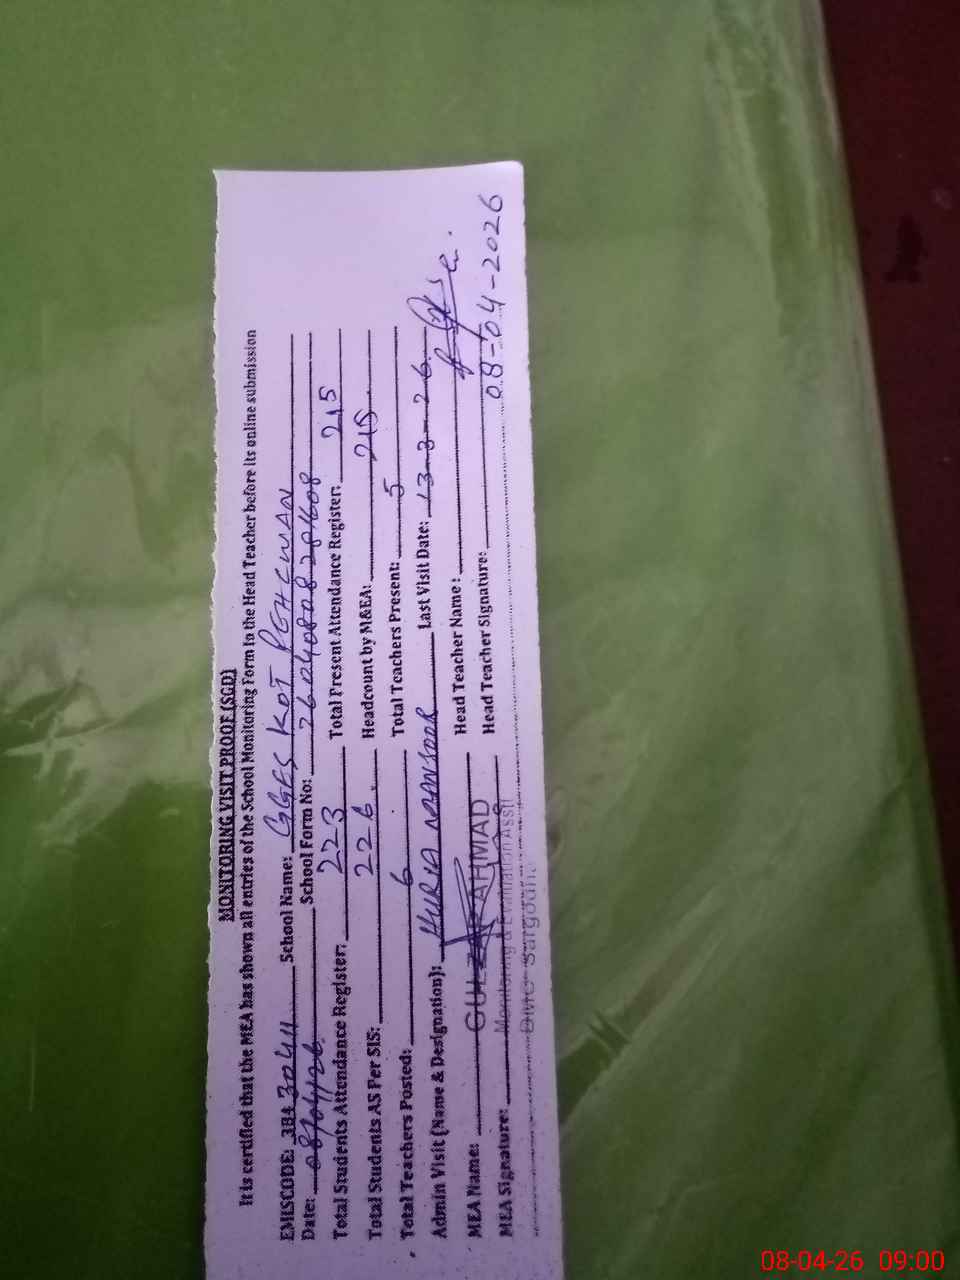 MONITORING VISIT PROOF (SGD)
It is certified that the MEA has shown all entries of the School Monitoring Form to the Head Teacher before its online submission
EMISCODE: 38430411 School Name: GGES KOT PEHLWAN
Date: 08/04/26 School Form No:
Total Students Attendance Register: 223 Total Present Attendance Register: 215
Total Students AS Per SIS: 226 Headcount by M&EA: 215
Total Teachers Posted: 6 Total Teachers Present: 5
Admin Visit (Name & Designation): MANSOOR Last Visit Date: 13-3-26
MEA Name: GULZAR AHMAD Head Teacher Name:
MEA Signature: Monitoring & Evaluation Asstt Head Teacher Signature: 08-04-2026
DMO Sargodha
08-04-26 09:00